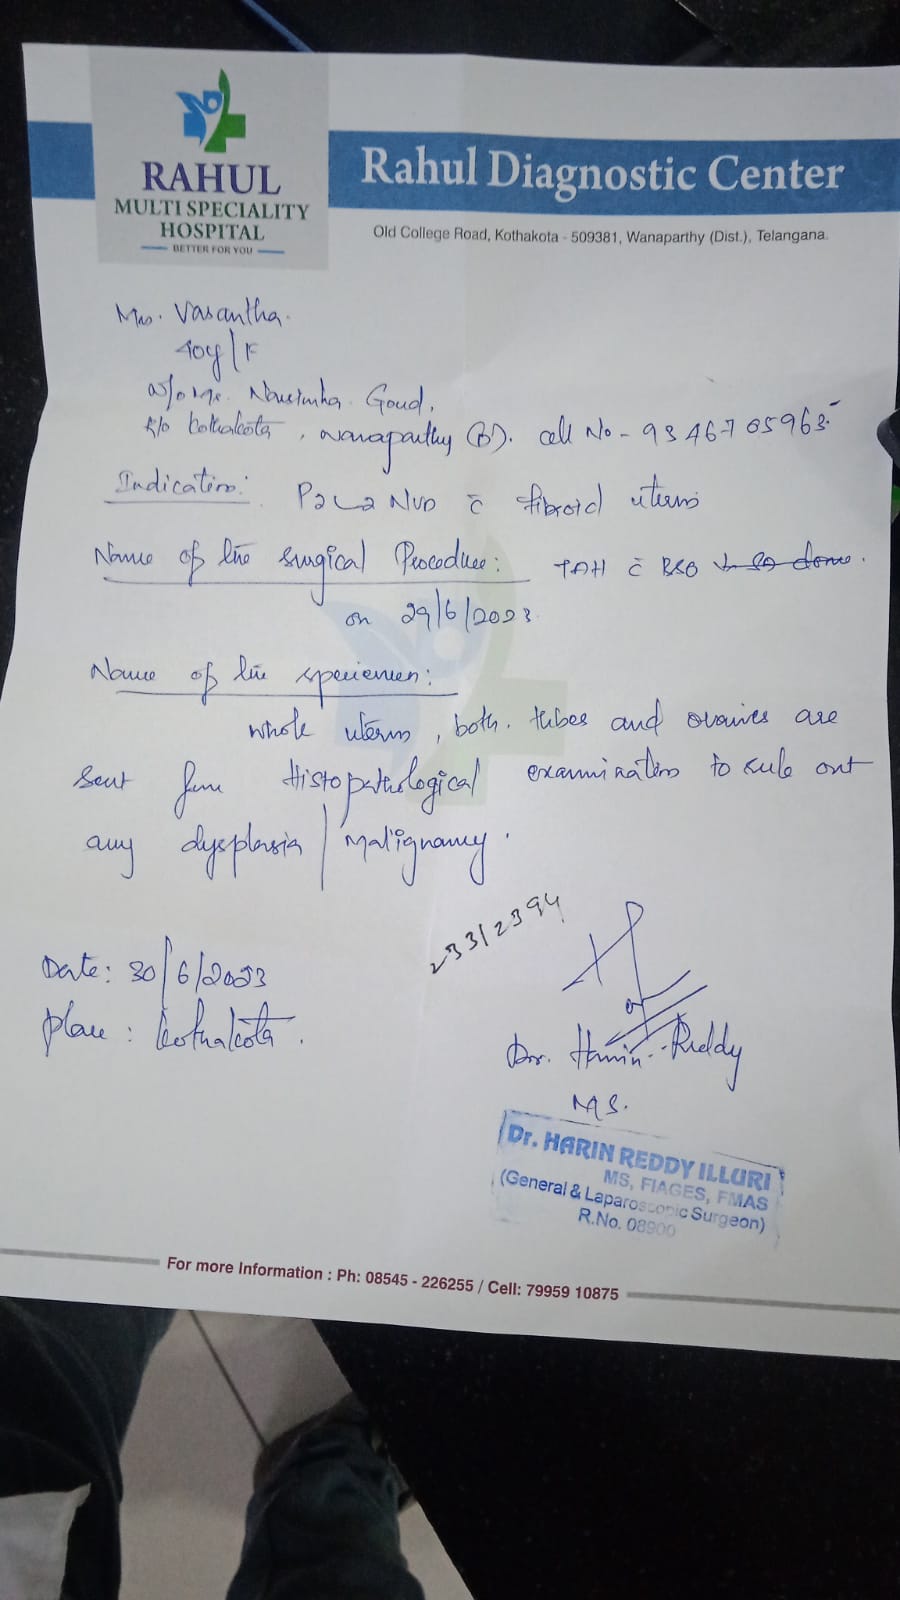 RAHUL
MULTI SPECIALITY
HOSPITAL
BETTER FOR YOU
Rahul Diagnostic Center
Old College Road, Kothakota - 509381, Wanaparthy (Dist.), Telangana.
Mrs. Vasantha.
40y/F
w/o Mr. Narsimha Goud,
R/o kothakota, wanaparthy (D). cell No - 9346705963
Indication: P2L2 NVD c̄ fibroid uterus
Name of the surgical Procedure: TAH c̄ BSO
on 29/6/2023.
Name of the specimen:
whole uterus, both. tubes and ovaries are
sent for Histopathological examination to rule out
any dysplasia / Malignancy.
233/2394
Date: 30/6/2023
place: kothakota.
Dr. Harin Reddy
MS.
Dr. HARIN REDDY ILLURI
MS, FIAGES, FMAS
(General & Laparoscopic Surgeon)
R.No. 08900
For more Information : Ph: 08545 - 226255 / Cell: 79959 10875